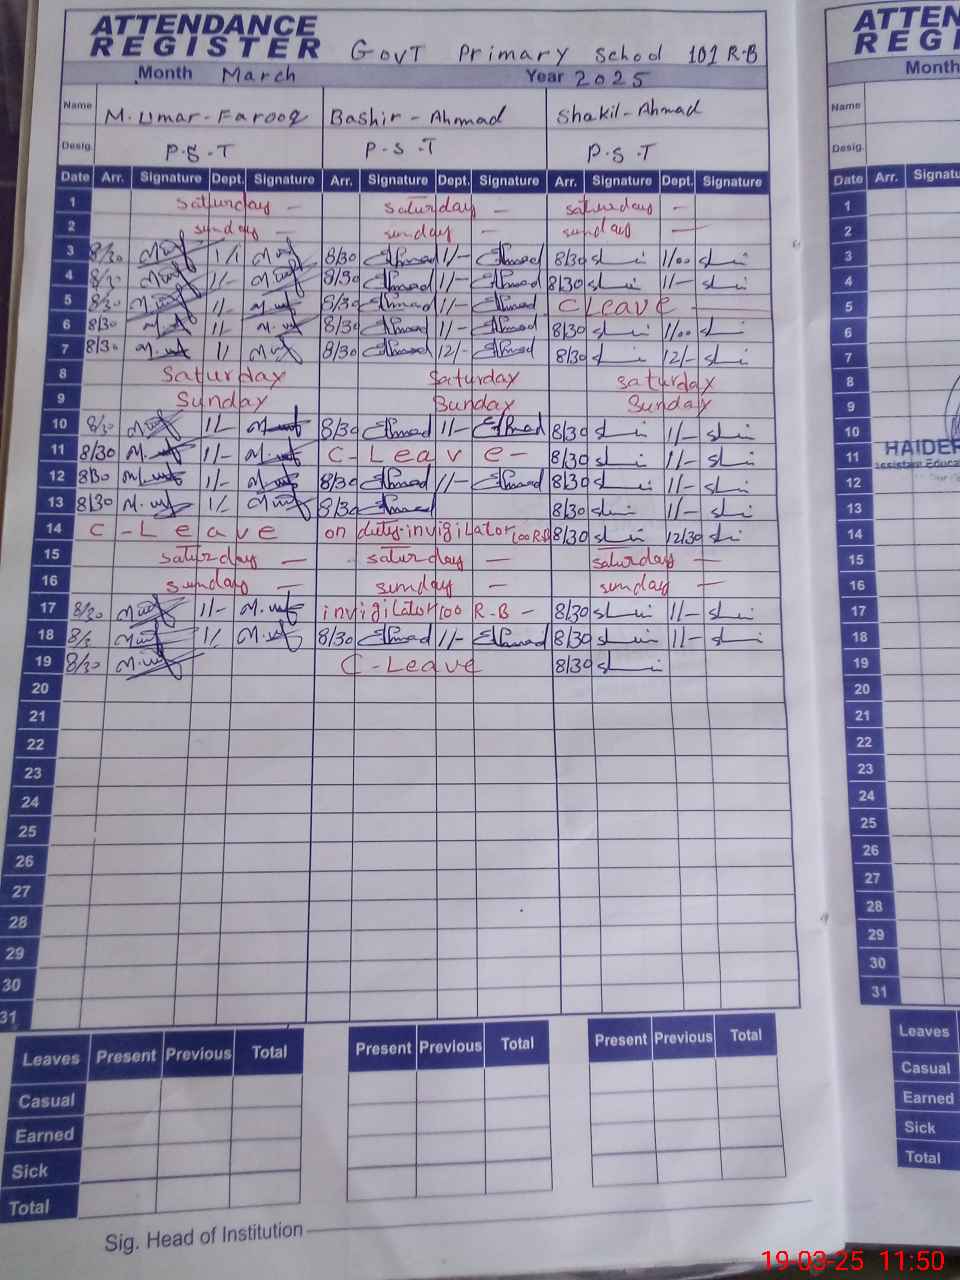 ATTENDANCE
REGISTER Govt Primary School 101 R-B
Month March Year 2025
Name M. Umar-Farooq Bashir-Ahmad Shakil-Ahmad
Desig. P.S.T P.S.T P.S.T
Date Arr. Signature Dept. Signature Arr. Signature Dept. Signature Arr. Signature Dept. Signature
1 Saturday - Saturday - Saturday -
2 Sunday - Sunday - Sunday -
3 8/30 1/- 8/30 1/- 8/30 1/00
4 8/30 1/- 8/30 1/- 8/30 1/-
5 8/30 1/- 8/30 1/- C Leave
6 8/30 1/- 8/30 1/- 8/30 1/00
7 8/30 1/ 8/30 12/- 8/30 12/-
8 Saturday Saturday Saturday
9 Sunday Sunday Sunday
10 8/30 1/- 8/30 1/- 8/30 1/-
11 8/30 1/- C-Leave- 8/30 1/-
12 8/30 1/- 8/30 1/- 8/30 1/-
13 8/30 1/- 8/30 8/30 1/-
14 C-Leave on duty invigilator 100 R.B 8/30 12/30
15 Saturday - Saturday - Saturday -
16 Sunday - Sunday - Sunday -
17 8/30 1/- invigilator 100 R-B - 8/30 1/-
18 8/3 1/ 8/30 1/- 8/30 1/-
19 8/30 C-Leave 8/30
20
21
22
23
24
25
26
27
28
29
30
31
Leaves Present Previous Total Present Previous Total Present Previous Total
Casual
Earned
Sick
Total
Sig. Head of Institution
ATTEN
REGI
Month
Name
Desig.
Date Arr. Signatu
1
2
3
4
5
6
7
8
9
10
HAIDER
11
12
13
14
15
16
17
18
19
20
21
22
23
24
25
26
27
28
29
30
31
Leaves
Casual
Earned
Sick
Total
19-03-25 11:50